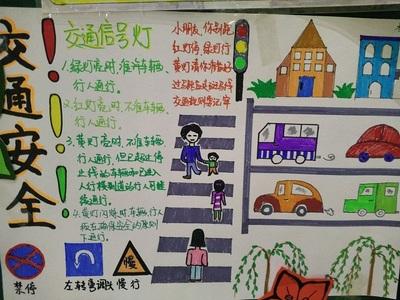 交通安全
交通信号灯
1、绿灯亮时,准许车辆、
行人通行。
2、红灯亮时,不准车辆、
行人通行。
3、黄灯亮时,不准车辆、
行人通行,但已越过停
止线的车辆和已进入
人行横道的行人可继
续通行。
4、黄灯闪烁时,车辆、行人
在确保安全的原则
下通行。
小朋友,你别跑
红灯停,绿灯行
黄灯请你准备好
交通规则要记牢
禁停
左转弯调头
慢行
慢